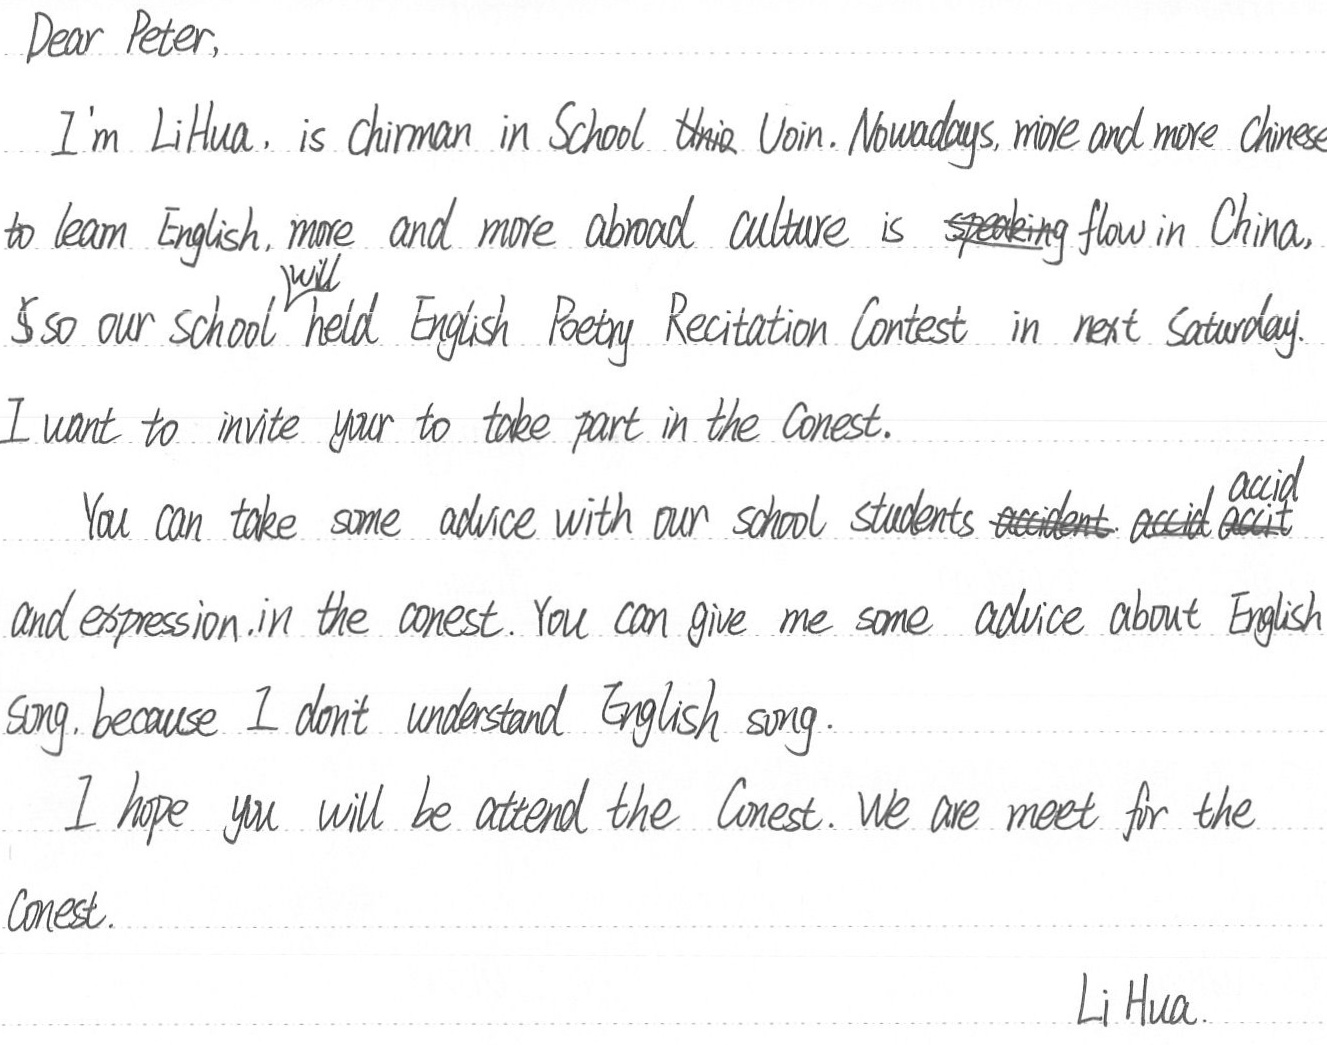 Dear Peter,
I'm LiHua. is chirman in School Uoin. Nowadays, more and more Chinese
to learn English. more and more abroad culture is flow in China,
so our school will held English Poetry Recitation Contest in next Saturday.
I want to invite your to take part in the Conest.
You can take some advice with our school students accid
and expression.in the conest. You can give me some advice about English
song. because I don't understand English song.
I hope you will be attend the Conest. We are meet for the
Conest.
Li Hua.